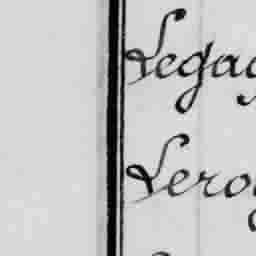 Legac
Lero